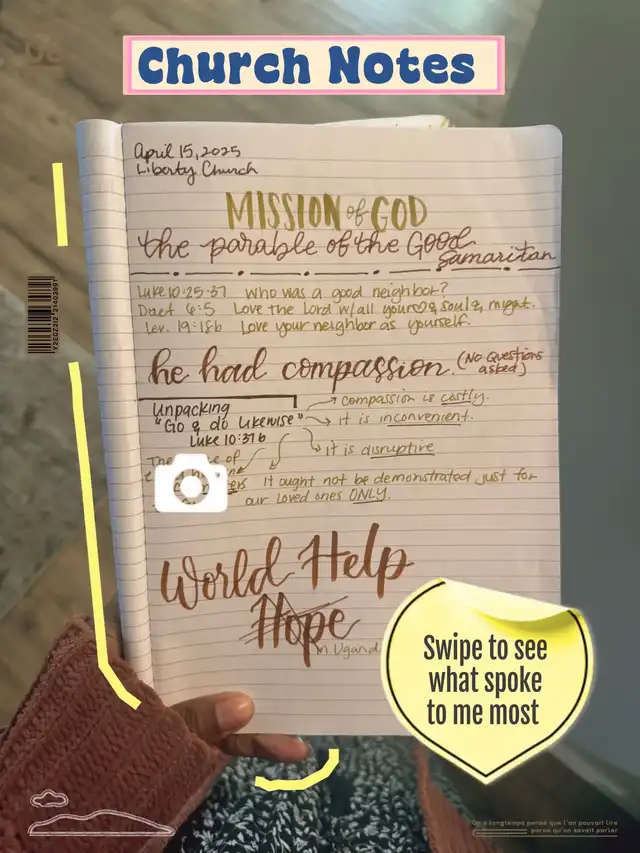 Church Notes
April 15, 2025
Liberty Church
MISSION of GOD
the parable of the Good
Samaritan
Luke 10:25-37 Who was a good neighbor?
Deut 6:5 Love the Lord w/all your ♡, soul &, might.
Lev. 19:18b Love your neighbor as yourself.
he had compassion. (No Questions
asked)
Unpacking
"Go & do likewise"
Luke 10:37b
compassion is costly.
it is inconvenient.
it is disruptive
The of
it ought not be demonstrated just for
our loved ones ONLY.
World Help
Hope
in Ugand
Swipe to see
what spoke
to me most
On a longtemps pensé que l'on pouvait lire
parce qu'on savait parler